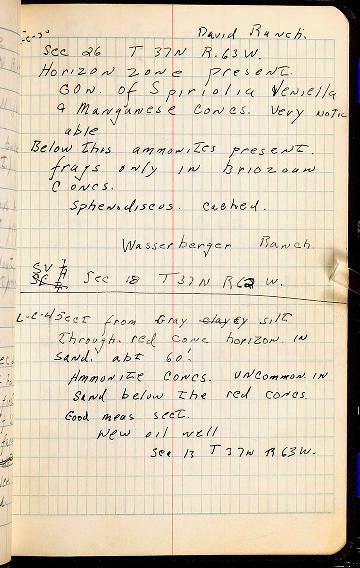 David Ranch.
Sec 26 T 37N R. 63 W.
Horizon zone present.
GON. of Spiriolia Veniella
& Manganese concs. very notic
able
Below this ammonites present.
frags only in Briozoum
Concs.
Sphenodiscus. cached.
Wasserberger Ranch
Sec 18 T 37N R 62 W.
L-C-4 Sect from Gray clayey silt
through red conc horizon. in
Sand. abt 60'.
Ammonite concs. uncommon in
Sand below the red concs.
Good meas sect.
New oil well
Sec 13 T 37N R 63W.